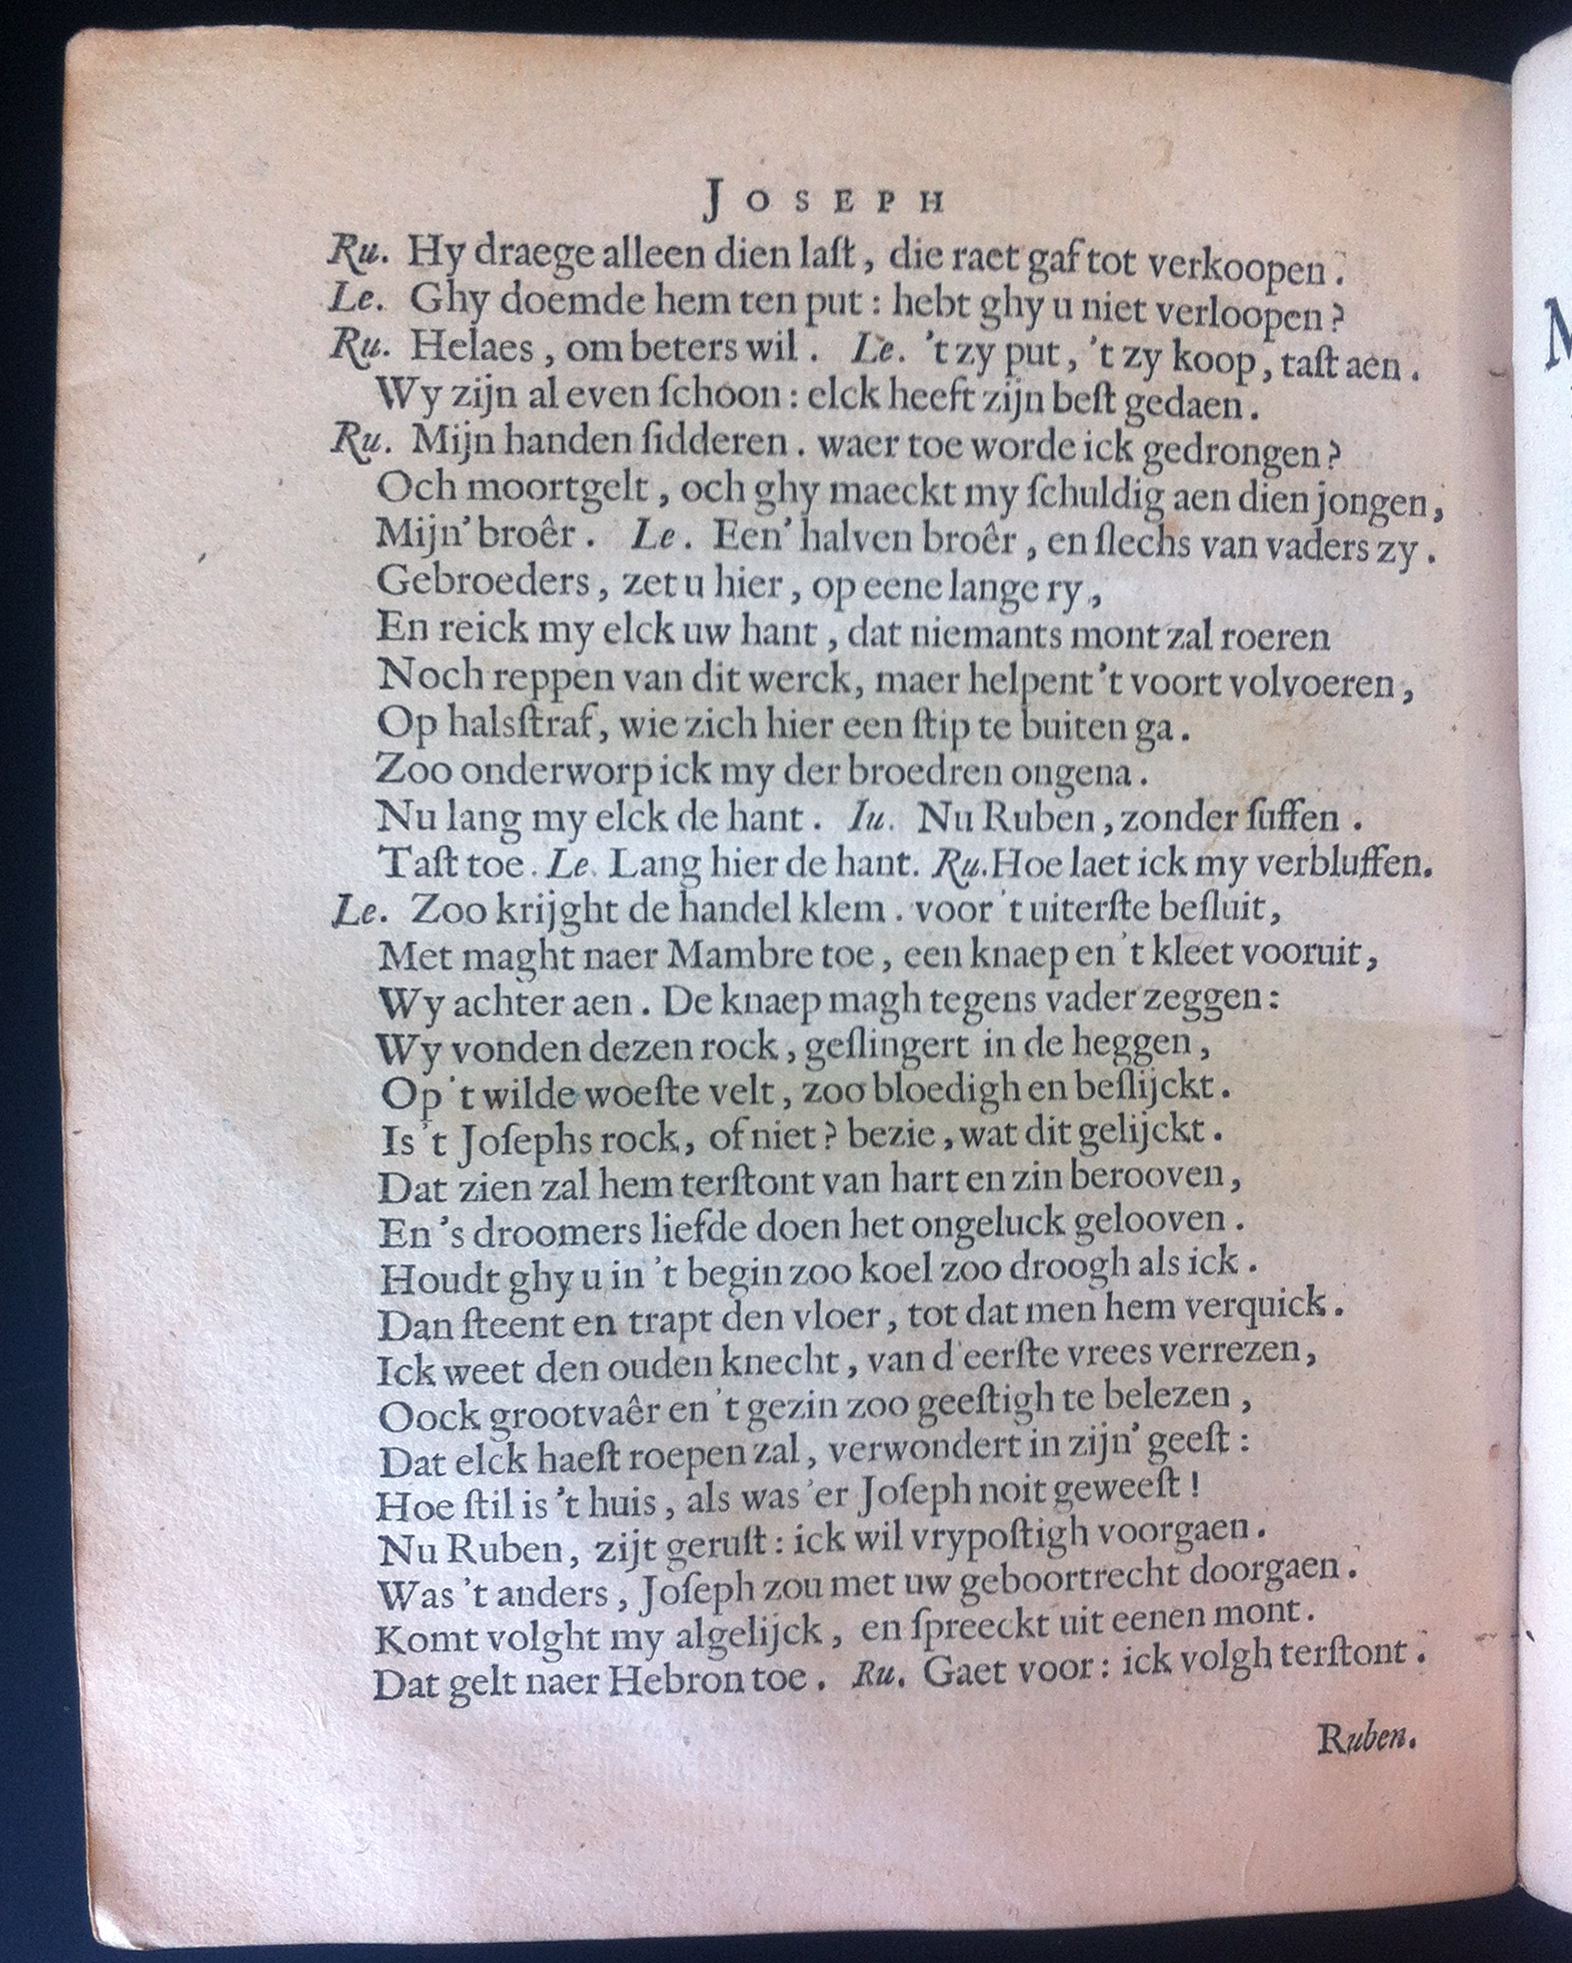 JOSEPH
Ru. Hy draege alleen dien laſt, die raet gaf tot verkoopen.
Le. Ghy doemde hem ten put: hebt ghy u niet verloopen?
Ru. Helaes, om beters wil. Le. 't zy put, 't zy koop, taſt aen.
Wy zijn al even ſchoon: elck heeft zijn beſt gedaen.
Ru. Mijn handen ſidderen. waer toe worde ick gedrongen?
Och moortgelt, och ghy maeckt my ſchuldig aen dien jongen,
Mijn' broêr. Le. Een' halven broêr, en ſlechs van vaders zy.
Gebroeders, zet u hier, op eene lange ry,
En reick my elck uw hant, dat niemants mont zal roeren
Noch reppen van dit werck, maer helpent 't voort volvoeren,
Op halsſtraf, wie zich hier een ſtip te buiten ga.
Zoo onderworp ick my der broedren ongena.
Nu lang my elck de hant. Iu. Nu Ruben, zonder ſuffen.
Taſt toe. Le. Lang hier de hant. Ru. Hoe laet ick my verbluffen.
Le. Zoo krijght de handel klem. voor 't uiterſte beſluit,
Met maght naer Mambre toe, een knaep en 't kleet vooruit,
Wy achter aen. De knaep magh tegens vader zeggen:
Wy vonden dezen rock, geſlingert in de heggen,
Op 't wilde woeſte velt, zoo bloedigh en beſlijckt.
Is 't Joſephs rock, of niet? bezie, wat dit gelijckt.
Dat zien zal hem terſtont van hart en zin berooven,
En 's droomers liefde doen het ongeluck gelooven.
Houdt ghy u in 't begin zoo koel zoo droogh als ick.
Dan ſteent en trapt den vloer, tot dat men hem verquick.
Ick weet den ouden knecht, van d'eerſte vrees verrezen,
Oock grootvaêr en 't gezin zoo geeſtigh te belezen,
Dat elck haeſt roepen zal, verwondert in zijn' geeſt:
Hoe ſtil is 't huis, als was 'er Joſeph noit geweeſt!
Nu Ruben, zijt geruſt: ick wil vrypoſtigh voorgaen.
Was 't anders, Joſeph zou met uw geboortrecht doorgaen.
Komt volght my algelijck, en ſpreeckt uit eenen mont.
Dat gelt naer Hebron toe. Ru. Gaet voor: ick volgh terſtont.
Ruben.
M